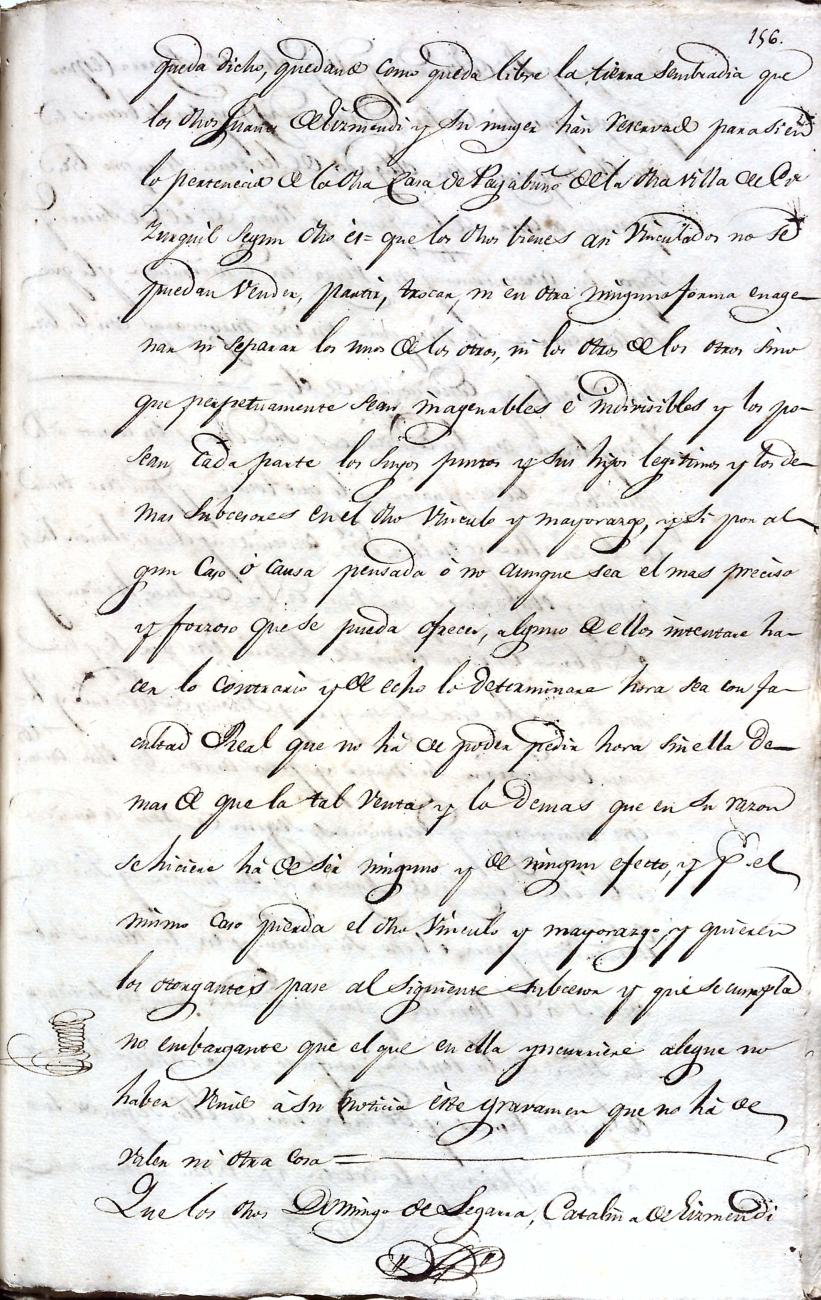 156.
queda dicho, quedando como queda libre la tierra sembradia que
los dhos Juanes de Eizmendi y su muger han reservado para si en
lo perteneciente de la dha Casa de de la dha villa de Or
mzurquil segun dho es= que los dhos bienes asi Vinculados no se
puedan Vender, partir, trocar, ni en otra ninguna forma enage-
nar ni separar los unos de los otros, ni los otros de los otros sino
que perpetuamente sean, inagenables é indivisibles y los po-
sean, Cada parte los suyos juntos y sus hijos legitimos y los de-
mas Subcesores en el dho Vinculo y mayorazgo, y si por al-
gun Caso ó causa pensada ó no aunque sea el mas preciso
y forzoso que se pueda ofrecer, alguno de ellos intentare ha-
cer lo contrario y de echo lo determinare hora sea con fa-
cultad Real que no há de poder pedir hora sin ella de-
mas de que la tal Venta y lo demas que en su razon
se hiciere há de ser ninguno y de ningun efecto, y pr. el
mismo caso pierda el dho Vinculo y mayorazgo y quieren
los otorgantes pase al siguiente subcesor y que se cumpla
no embargante que el que en ella yncurriere alegue no
haber venido á su noticia éste gravamen que no há de
valer ni otra cosa =
Que los dhos Domingo de Legarra, Catalina de Eizmendi